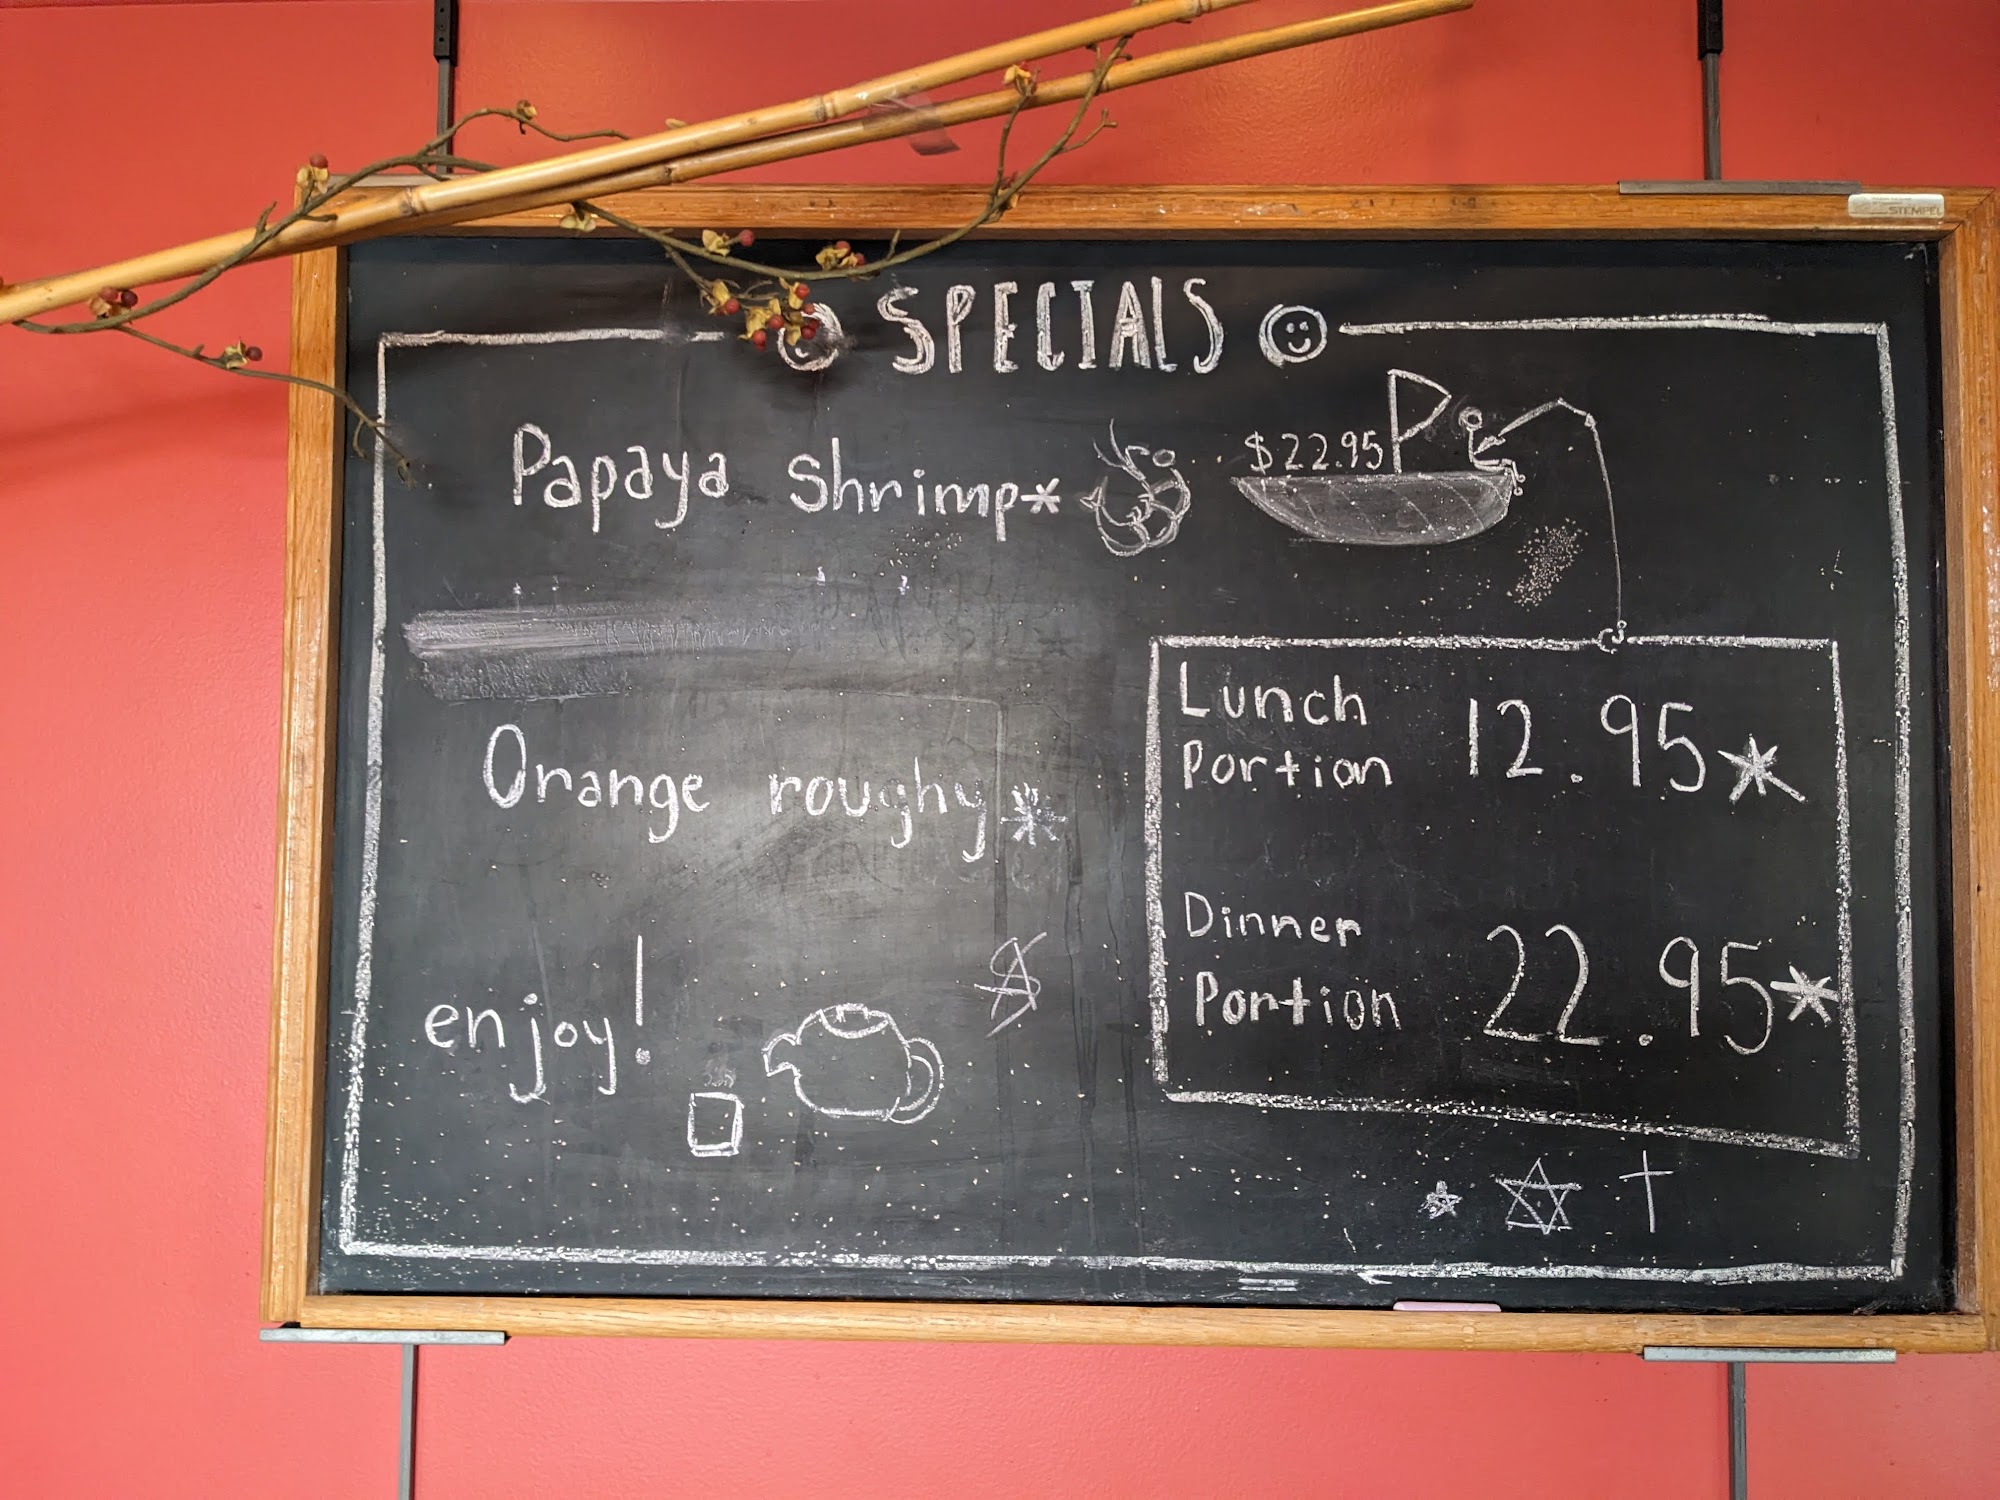 SPECIALS
Papaya shrimp* $22.95
Orange roughy*
Lunch
Portion 12.95*
Dinner
Portion 22.95*
enjoy!
$
STEMPEL